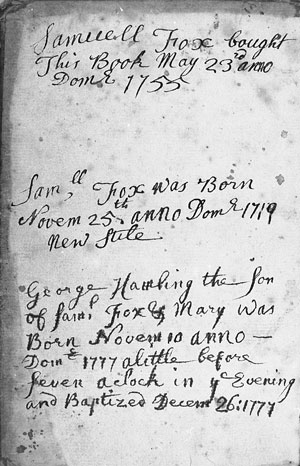 Samuell Fox bought
This Book May 23rd anno
Dome 1755
Samll Fox was Born
Novem 25th anno Dome 1719
New Stile
George Hambling the Son
of Saml Fox & Mary was
Born Novem 10 anno —
Dome 1777 a little before
Seven a clock in ye Evening
and Baptized Decem 26: 1777